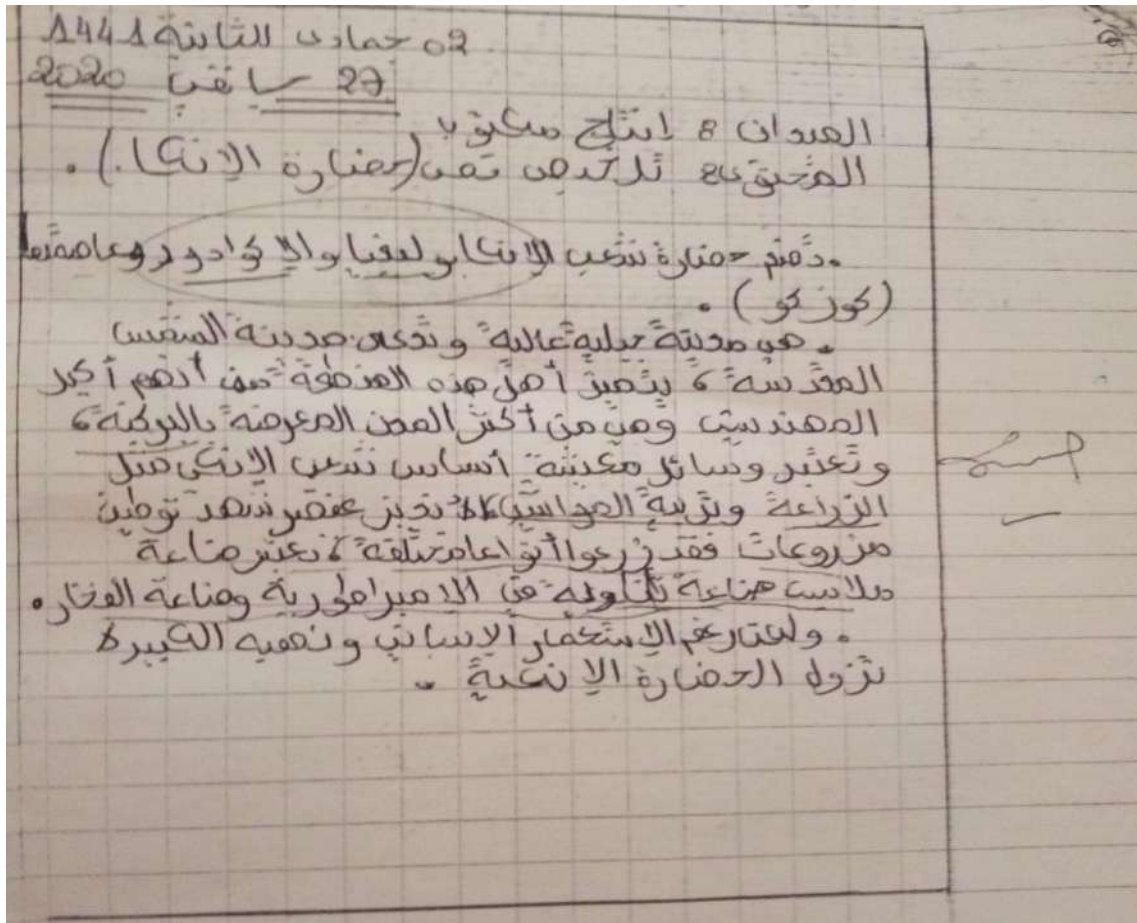 02 جمادى الثانية 1441
27 جانفي 2020
الميدان: إنتاج مكتوب
المحتوى: تلخيص نص (حضارة الإنكا).
. تضم حضارة شعب الإنكا بوليفيا والإكوادور وعاصمتها
(كوزكو).
. هي مدينة جبلية عالية وتدعى مدينة الشمس
المقدسة، يتميز أهل هذه المنطقة أنهم أكبر
المهندسين وهي من أكثر المدن المعرضة بالبركنة،
وتعتبر وسائل معيشة أساس شعب الإنكى مثل
الزراعة وتربية المواشي شهد توطين
مزروعات فقد زرعوا أنواعا مختلفة، تعتبر صناعة
ملابس صناعة ثانوية في الامبراطورية وصناعة الفخار.
. رغم الإستعمار الإسباني ونهبه الكبير لا
تزول الحضارة الإنكية.